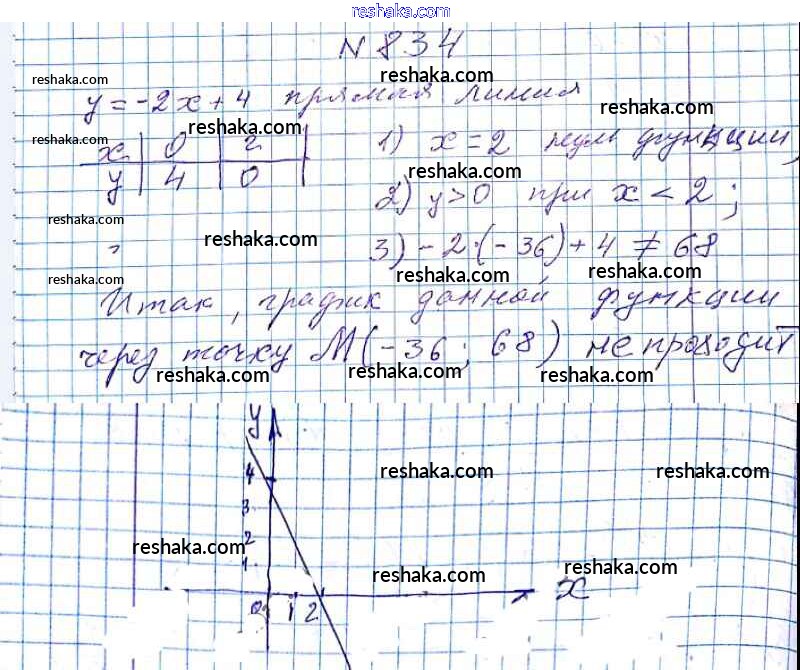 reshaka.com
№ 834
reshaka.com
reshaka.com
y = -2x + 4 прямая линия
reshaka.com
reshaka.com
reshaka.com
x | 0 | 2
y | 4 | 0
1) x = 2 нуль функции,
reshaka.com
2) y > 0 при x < 2;
reshaka.com
reshaka.com
3) -2·(-36) + 4 ≠ 68
reshaka.com
reshaka.com
reshaka.com
Итак, график данной функции
через точку М(-36; 68) не проходит
reshaka.com
reshaka.com
reshaka.com
y
4
reshaka.com
reshaka.com
3
2
reshaka.com
1
reshaka.com
reshaka.com
0 1 2 x